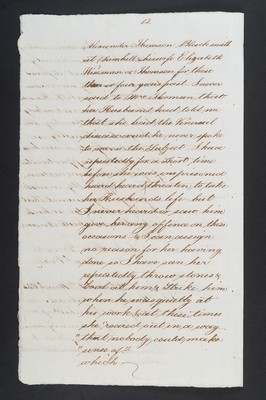 12.
Alexander Thomson Blacksmith
at Chumhill, his wife Elizabeth
or Thomson for these
three or four years past. I never
said to Mrs Thomson that
her Husband had told me
that she had the Venereal
disease and he never spoke
to me on the subject. I have
repeatedly for a short time
before she was imprisoned
heard her threaten to take
her Husbands life but
I never heard or saw him
give her any offence on these
occasions & I can assign
no reason for her having
done so I have seen her
repeatedly throw stones &
Coal at him & Strike him
when he was quietly at
his work & at these times
she "roared out in a way
"that nobody could make
"sense of it
which